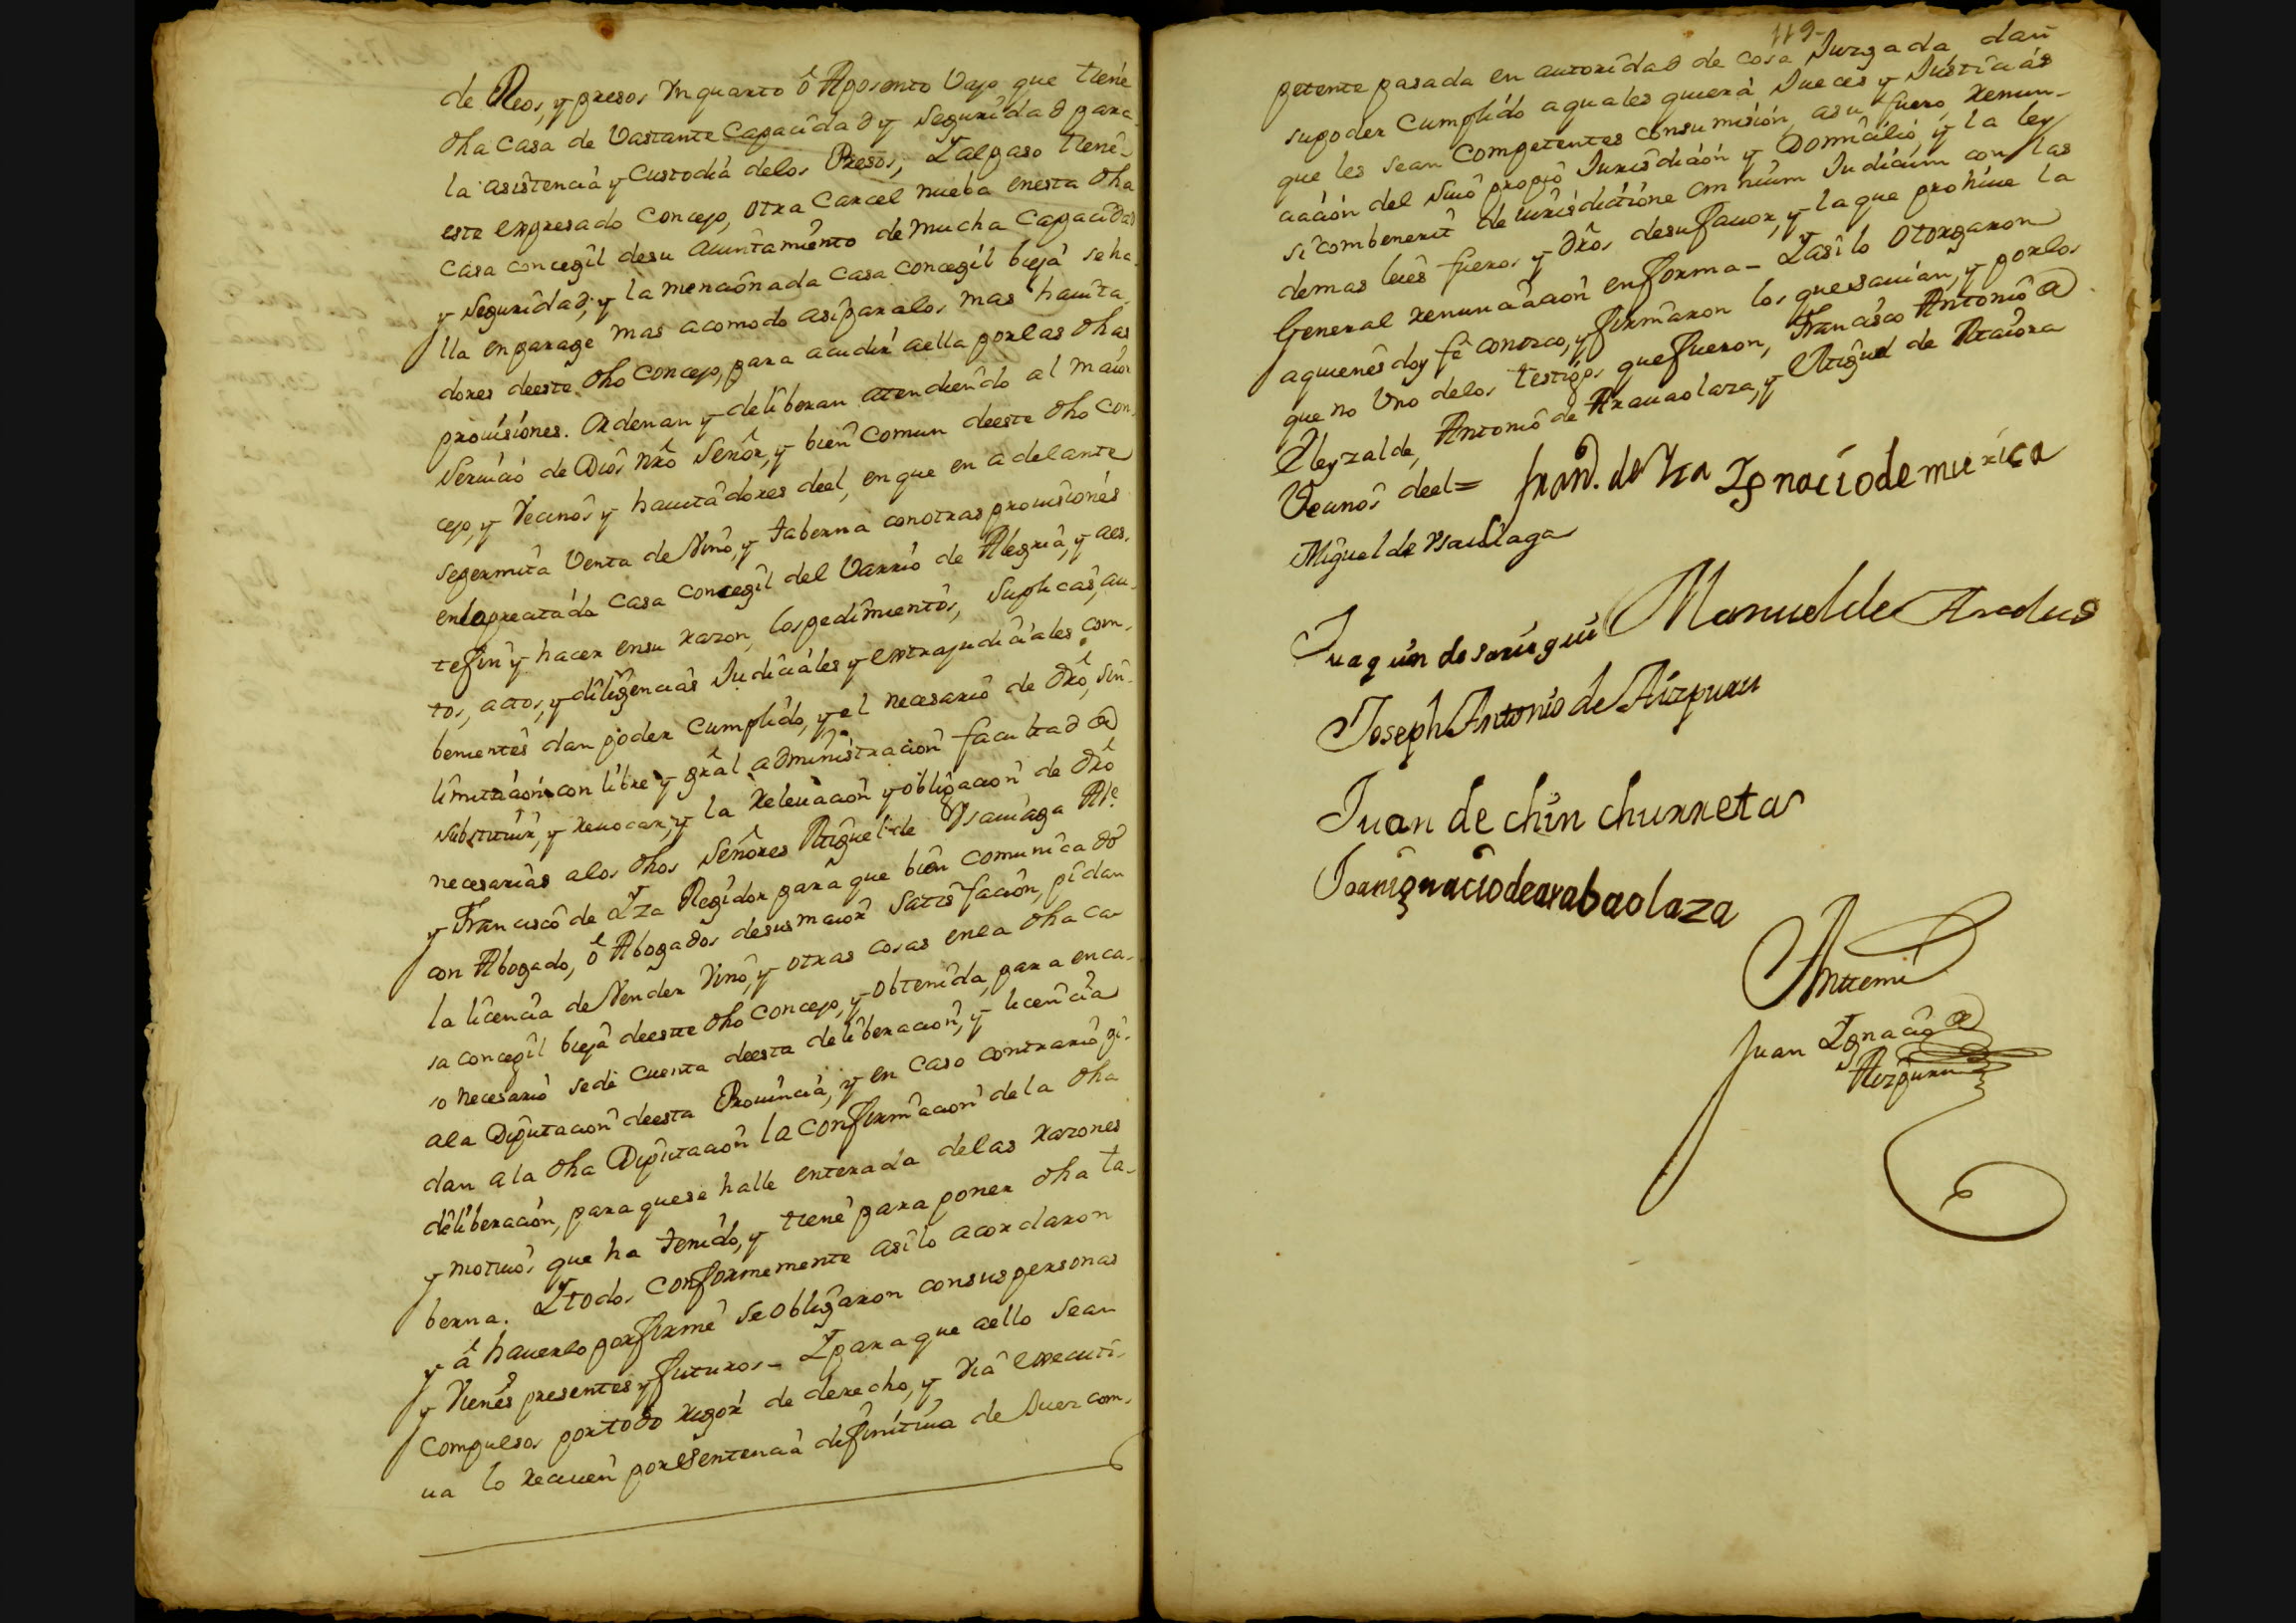 de Reos, y presos Vn quarto ô Aposento Vajo que tiene
dha Casa de Vastante Capacidad y Seguridad para
la asistencia y Custodia delos Presos, Y al paso tiene
este expresado Concejo, otra Carcel nueba enesta dha
Casa concegil desu aiuntamiento de mucha Capacidad
y Seguridad, y la mencionada Casa Concegil bieja se ha
lla en parage mas acomodo asi para los mas havita
dores deeste dho Concejo, para acudir aella por las dhas
prouisiones. Ordenan y deliberan atendiendo al maior
Seruicio de Dios nrô Señor, y bien Comun deeste dho Con
cejo, y Vecinos y hauitadores deel, en que en adelante
se permita Venta de Vino, y taberna conotras prouisiones
enla precitada Casa Concegil del Varrio de Alegria, y aes
te fin y hacer ensu razon, los pedimientos, Suplicas, au
tos, actos, y diligencias Judiciales y extrajudiciales com
benientes dan poder Cumplido, y el necesario de drô, sin
limitacion con libre y gral administracion facultad de
Substituir, y reuocar, y la releuacion y obligacion de drô
necesarias alos dhos Señores Miguel de Vsauiaga Alc.e
y Francisco de Yza Regidor para que bien comunicado
con Abogado, ô Abogados desus maior satisfacion, pidan
la licencia de Vender Vino, y otras cosas enla dha ca
sa concegil bieja deeste dho Concejo, y obtenida, para enca
so necesario sedê cuenta deesta deliberacion, y licencia
ala Diputacion deesta Prouincia, y en caso contrario pi
dan ala dha Diputacion la Confirmacion de la dha
deliberacion, para quese halle enterada delas razones
y motiuos que ha tenido, y tiene para poner dha ta
berna. Y todos Conformemente asilo acordaron
y â hauerlo por firme se obligaron consus personas
y Vienes presentes y futuros - Y para que aello sean
Compulsos por todo rigor de derecho, y Via executi
ua lo reciuen por Sentencia difinitiua de Juez com
119
petente pasada en autoridad de cosa Juzgada dan
supoder Cumplido a quales quiera Jueces y Justicias
que les sean Competentes consumision, asu fuero, renun
ciacion del suio propio Jurisdicion y Domicilio, y la ley
si combenerit de iurisdictione Omnium Judicum con las
demas leies fueros y drôs desu fauor, y la que prohiue la
General renunciacion en forma - Y asi lo otorgaron
aquienes doy fê conozco, y firmaron los que sauian, y por los
que no Vno delos testigos que fueron, Francisco Antonio de
Eleyzalde, Antonio de Arauaolaza, y Miguel de Ataiora
Vecinos deel =
fran.co de Yza Ygnacio de muxica
Miguel de Vsauiaga
Juaquin de sariegui Manuel de Andus
Joseph Antonio de Aizpuru
Juan de chinchurreta
Joan ignacio de arabaolaza
Antemi
Juan Ygnacio de
Aizpuru